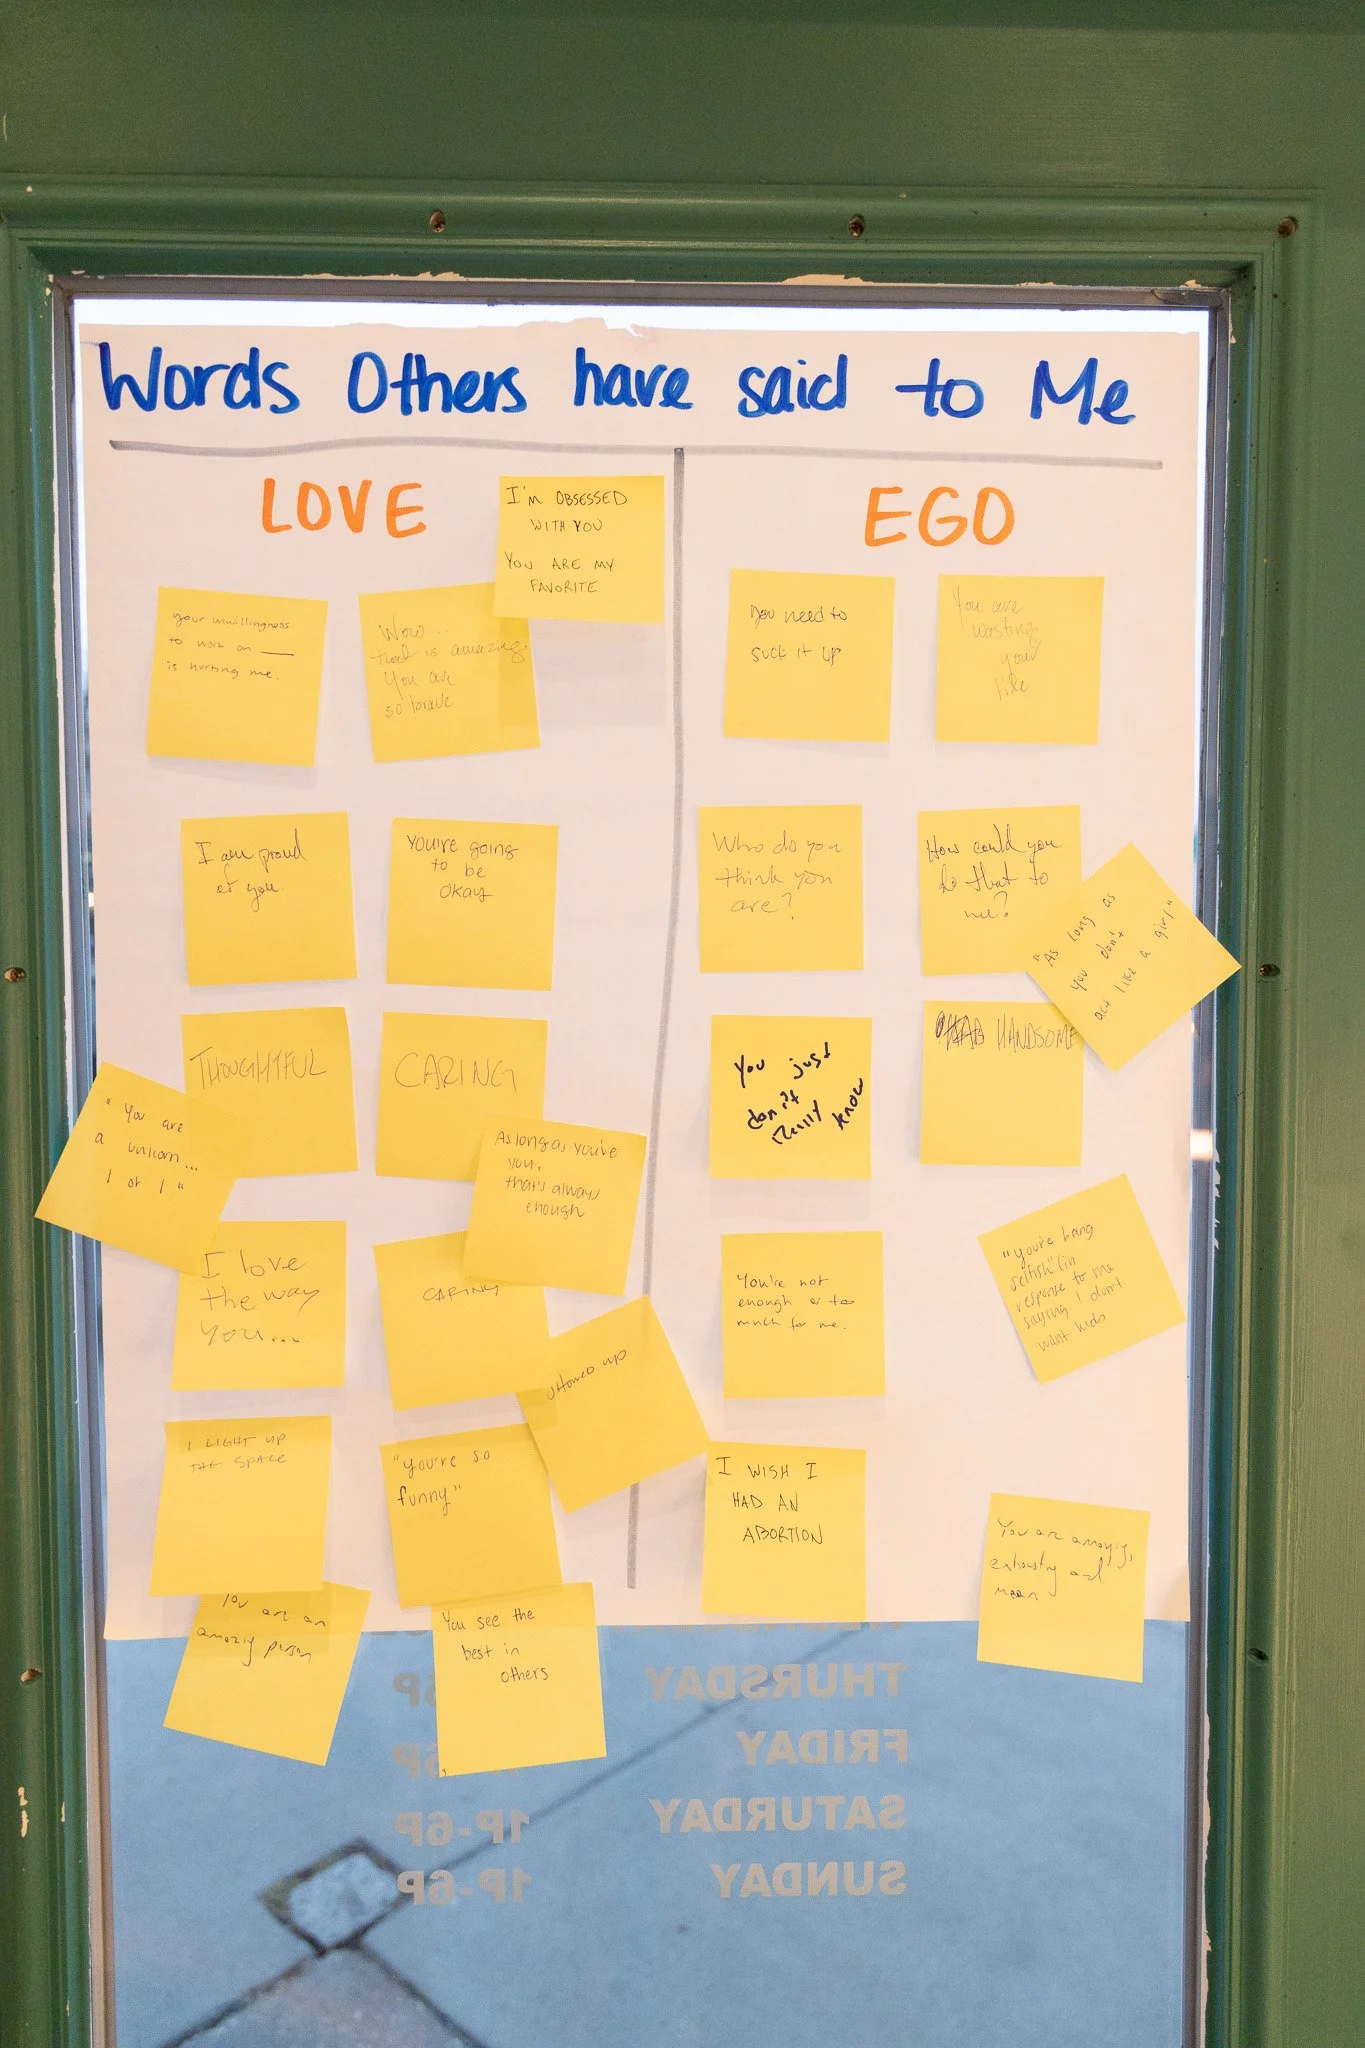 Words Others have said to Me
LOVE
I'm OBSESSED
WITH YOU
YOU ARE MY
FAVORITE
your unwillingness
to work on ___
is hurting me.
Wow...
that is amazing.
You are
so brave
I am proud
of you.
You're going
to be
okay
THOUGHTFUL
CARING
"You are
a unicorn...
1 of 1"
As long as you're
you,
that's always
enough
I love
the way
you...
CARING
showed up
I LIGHT UP
THE SPACE
"you're so
funny"
You are an
amazing person
You see the
best in
others
EGO
You need to
suck it up
You are
wasting
your
life
Who do you
think you
are?
How could you
do that to
me?
"As long as
you don't
act like a girl"
You just
don't
really know
HANDSOME
You're not
enough or too
much for me.
"you're being
selfish" (in
response to me
saying I don't
want kids
I WISH I
HAD AN
ABORTION
You are annoying,
exhausting and
mean
THURSDAY
FRIDAY
SATURDAY 1P-6P
SUNDAY 1P-6P